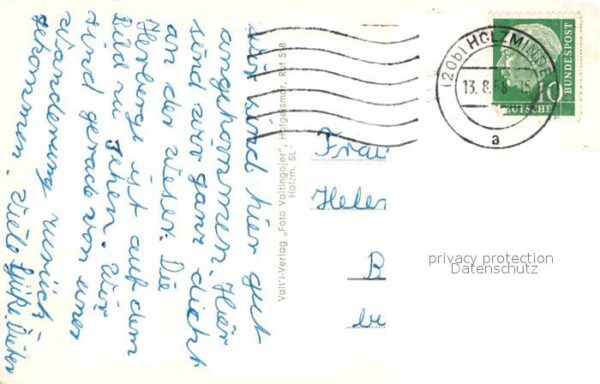 Wir sind hier gut
angekommen. Hier
sind wir ganz dicht
an der Weser. Die
Herberge ist auf dem
Bild zu sehen. Wir
sind gerade von einer
Wanderung zurück-
gekommen. Viele Grüße. Dieter
Voitt-Verlag „Foto Vottingojer", Hofgeismar, Ruf 518
Holzm. SL
(20b) HOLZMINDE
13. 8. 58 - 15
a
10
DEUTSCHE
BUNDESPOST
Frau
Helen
B
be
privacy protection
Datenschutz